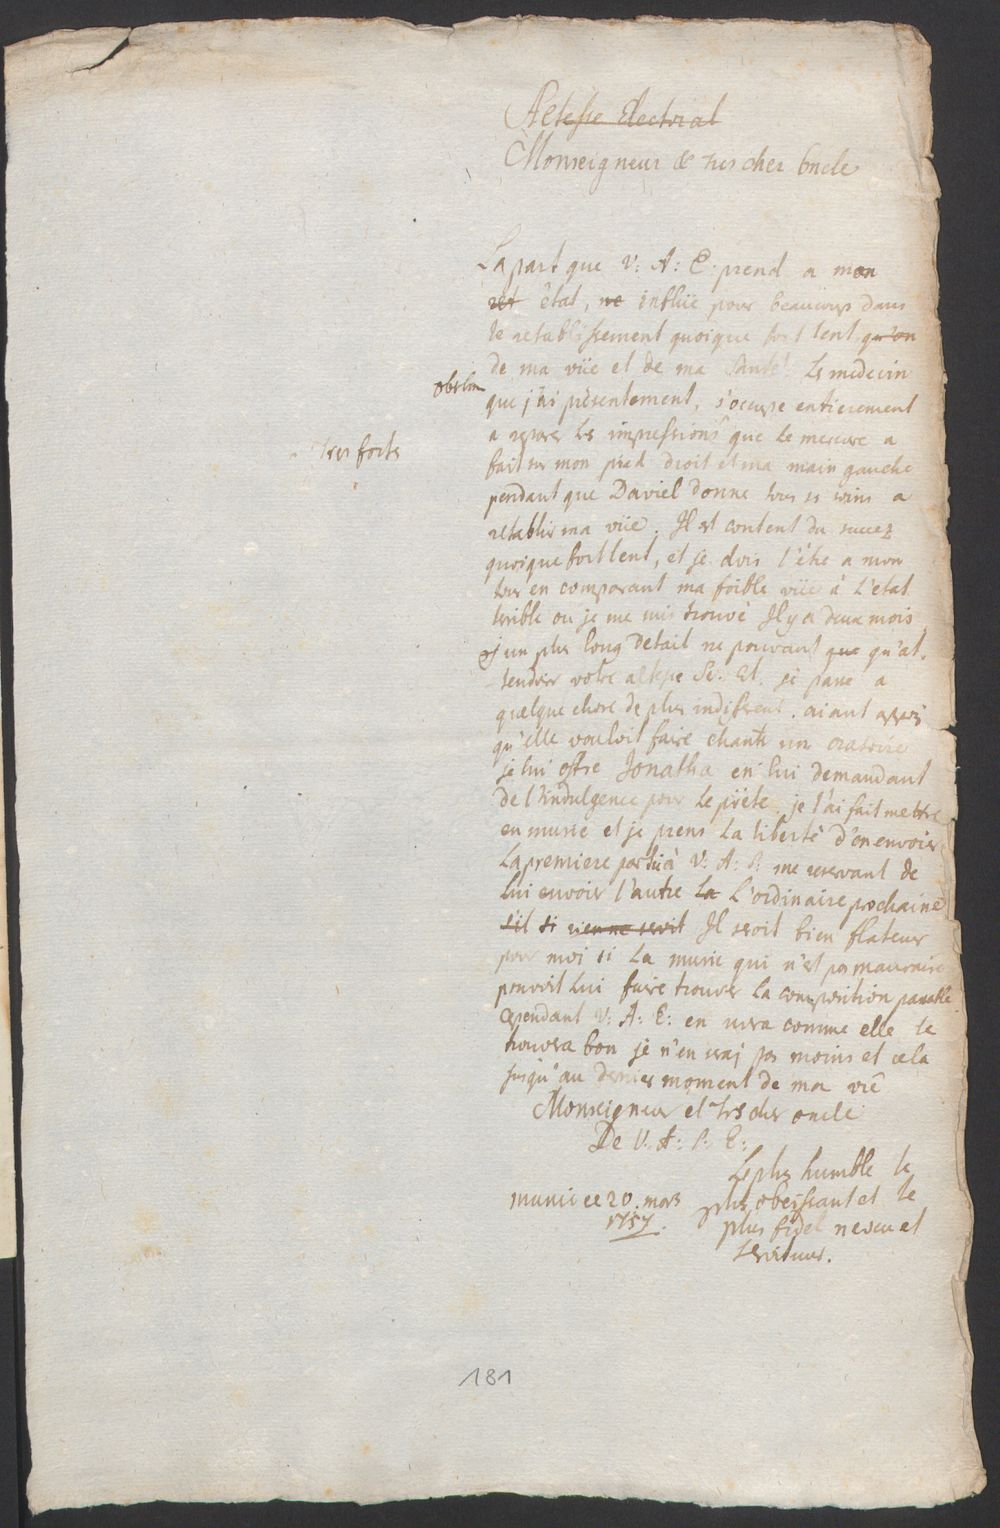 Altesse Electoral
Monseigneur & tres cher Oncle
La part que V: A: E prend a mon
état, ne inflüe pour beaucoup dans
le retablissement quoique fort lent qu'on
de ma vüe et de ma Santé. Le medecin
que j'ai présentement, s'occupe entierement
a reparer les impressions que le mercure a
tres forts
fait sur mon pied droit et ma main gauche
pendant que Daviel donne tous ses soins a
retablir ma vüe. Il est content du succez
quoique fort lent, et je dois l'être a mon
tour en comparant ma foible vüe à l'état
terrible ou je me suis trouvé Il y a deux mois
un plus long detail ne pouvant que qu'at-
tendrir votre altesse Se: El. je passe a
quelque chose de plus indifferent. aiant appris
qu'elle vouloit faire chanter un oratoire
je lui offre Jonatha en lui demandant
de l'indulgence pour le poëte je l'ai fait mettre
en music et je prens la liberté d'en envoier
la premiere partie à V: A: S: me reservant de
lui envoier l'autre la l'ordinaire prochaine
s'il si rien ne seroit Il seroit bien flateur
pour moi si la music qui n'est pas mauvaise
pouvoit lui faire trouver la composition passable
cependant V: A: E: en usera comme elle le
trouvera bon je n'en serai pas moins et cela
jusqu'au dernier moment de ma vie
Monseigneur et tres cher oncle
De V: A: S: E:
Le plus humble le
munic ce 20. mars plus obeissant et le
1757. plus fidel neveu et
serviteur.
181